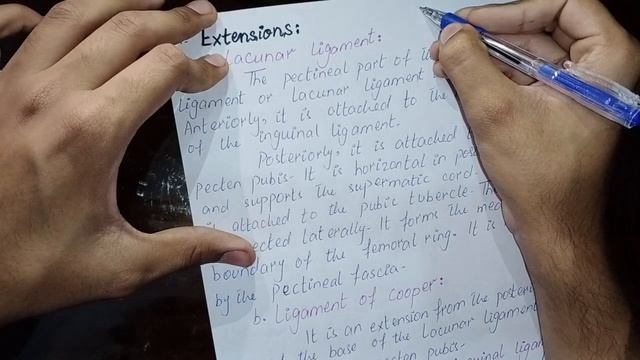 Extensions:
Lacunar ligament:
The pectineal part of
ligament or lacunar ligament
Anteriorly, it is attached to the
of the inguinal ligament.
Posteriorly, it is attached
pecten pubis. It is horizontal in
and supports the supermatic cord.
is attached to the pubic tubercle.
laterally. It forms the
boundary of the femoral ring. It is
by the Pectineal fascia.
b. Ligament of Cooper:
It is an extension from the
the base of the lacunar ligament
pecten pubis.